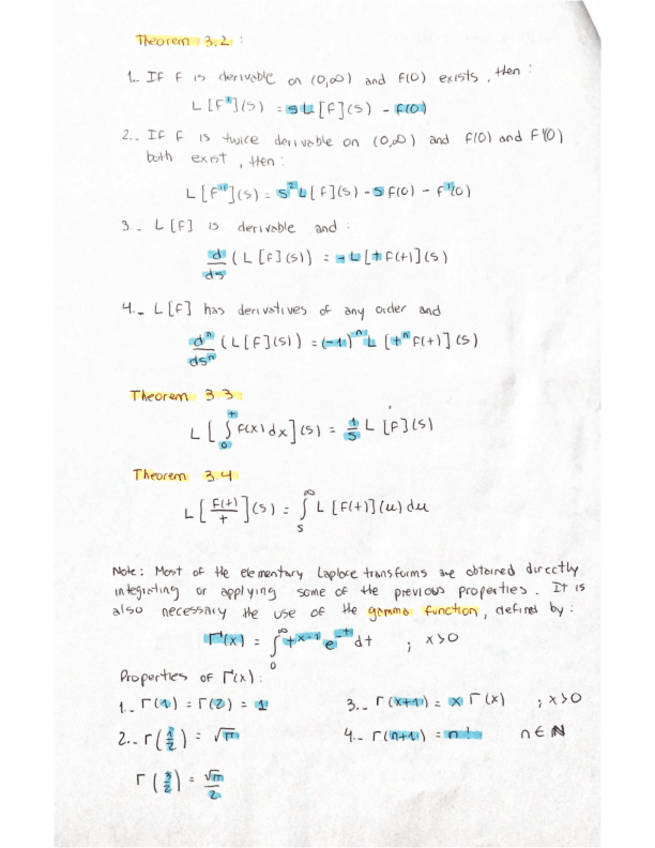 Theorem 3.2 :
1.. If f is derivable on (0,∞) and f(0) exists, then :
L[f'](s) = sL[f](s) - f(0)
2.. If f is twice derivable on (0,∞) and f(0) and f'(0)
both exist, then :
L[f''](s) = s²L[f](s) - s f(0) - f'(0)
3.. L[f] is derivable and :
d/ds (L[f](s)) = -L[t f(t)](s)
4.. L[f] has derivatives of any order and
dⁿ/dsⁿ (L[f](s)) = (-1)ⁿ L[tⁿ f(t)](s)
Theorem 3.3
L[∫₀ᵗ f(x)dx](s) = 1/s L[f](s)
Theorem 3.4
L[f(t)/t](s) = ∫ₛ^∞ L[f(t)](u)du
Note: Most of the elementary Laplace transforms are obtained directly
integrating or applying some of the previous properties. It is
also necessary the use of the gamma function, defined by :
Γ(x) = ∫₀^∞ t^(x-1) e^(-t) dt ; x>0
Properties of Γ(x):
1.. Γ(1) = Γ(2) = 1 3.. Γ(x+1) = x Γ(x) ; x>0
2.. Γ(1/2) = √π 4.. Γ(n+1) = n! n∈ℕ
Γ(3/2) = √π/2